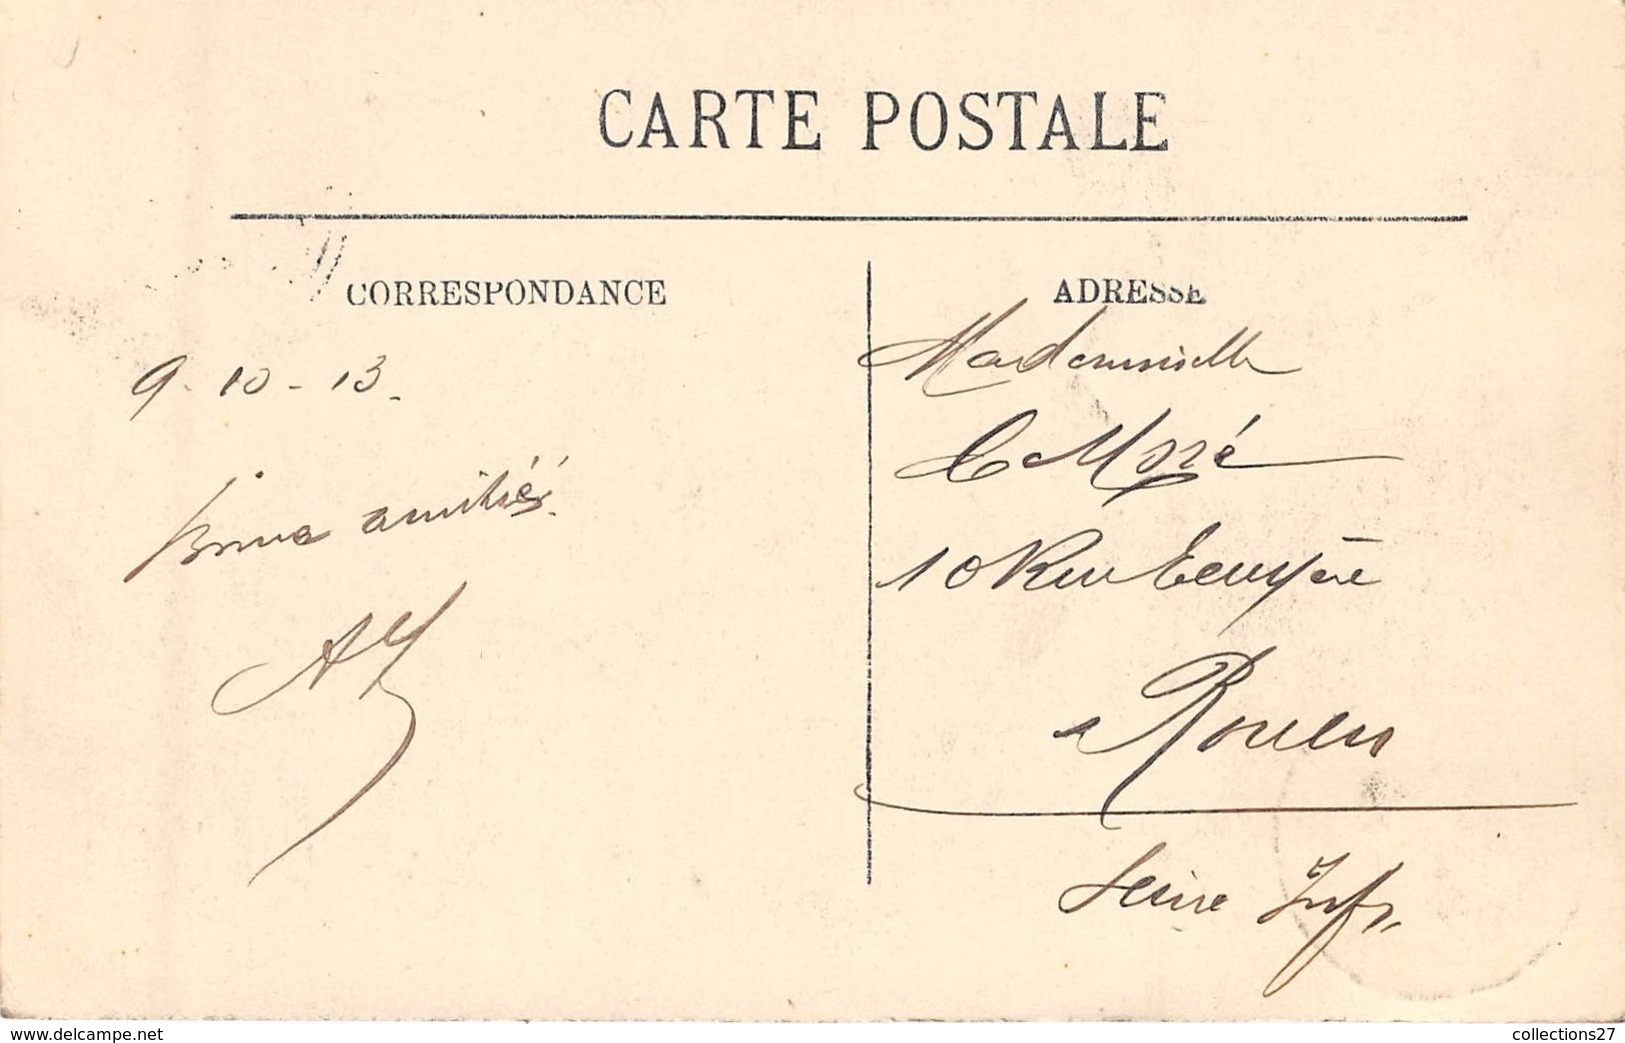 CARTE POSTALE
CORRESPONDANCE
9-10-13.
Bonne amitiés.
ADRESSE
Mademoiselle
10 Rue Ecuyère
a Rouen
Seine Infr.
www.delcampe.net
collections27